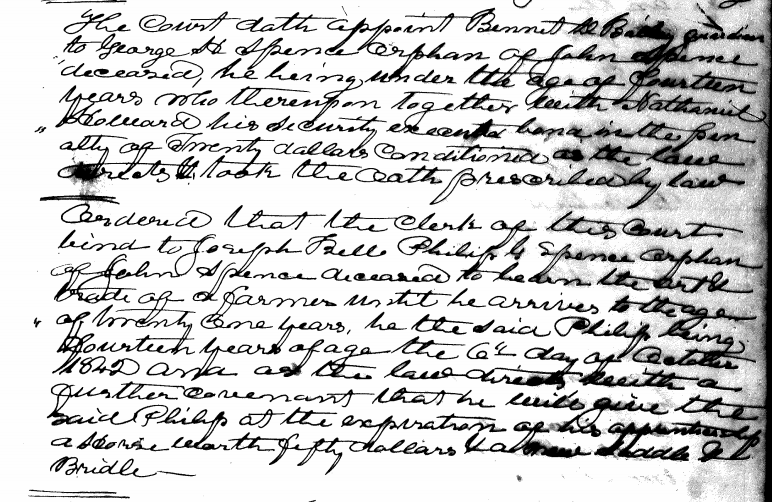 The Court doth appoint Bennet D Bailey guardian
to George H Spence orphan of John Spence
deceased, he being under the age of fourteen
years who thereupon together with Nathaniel
Howard his security executed bond in the pen
alty of Twenty dollars Conditioned as the law
directs & took the Oath prescribed by law
Ordered that the Clerk of this Court
bind to Joseph Bell Philip G Spence orphan
of John Spence deceased to learn the art &
trade of a farmer until he arrives to the age
of twenty one years, he the said Philip being
fourteen years of age the 6th day of October
1842 and as the law directs with a
further covenant that he will give the
said Philip at the expiration of his apprenticeship
a Horse worth fifty dollars & a new Saddle &
Bridle —